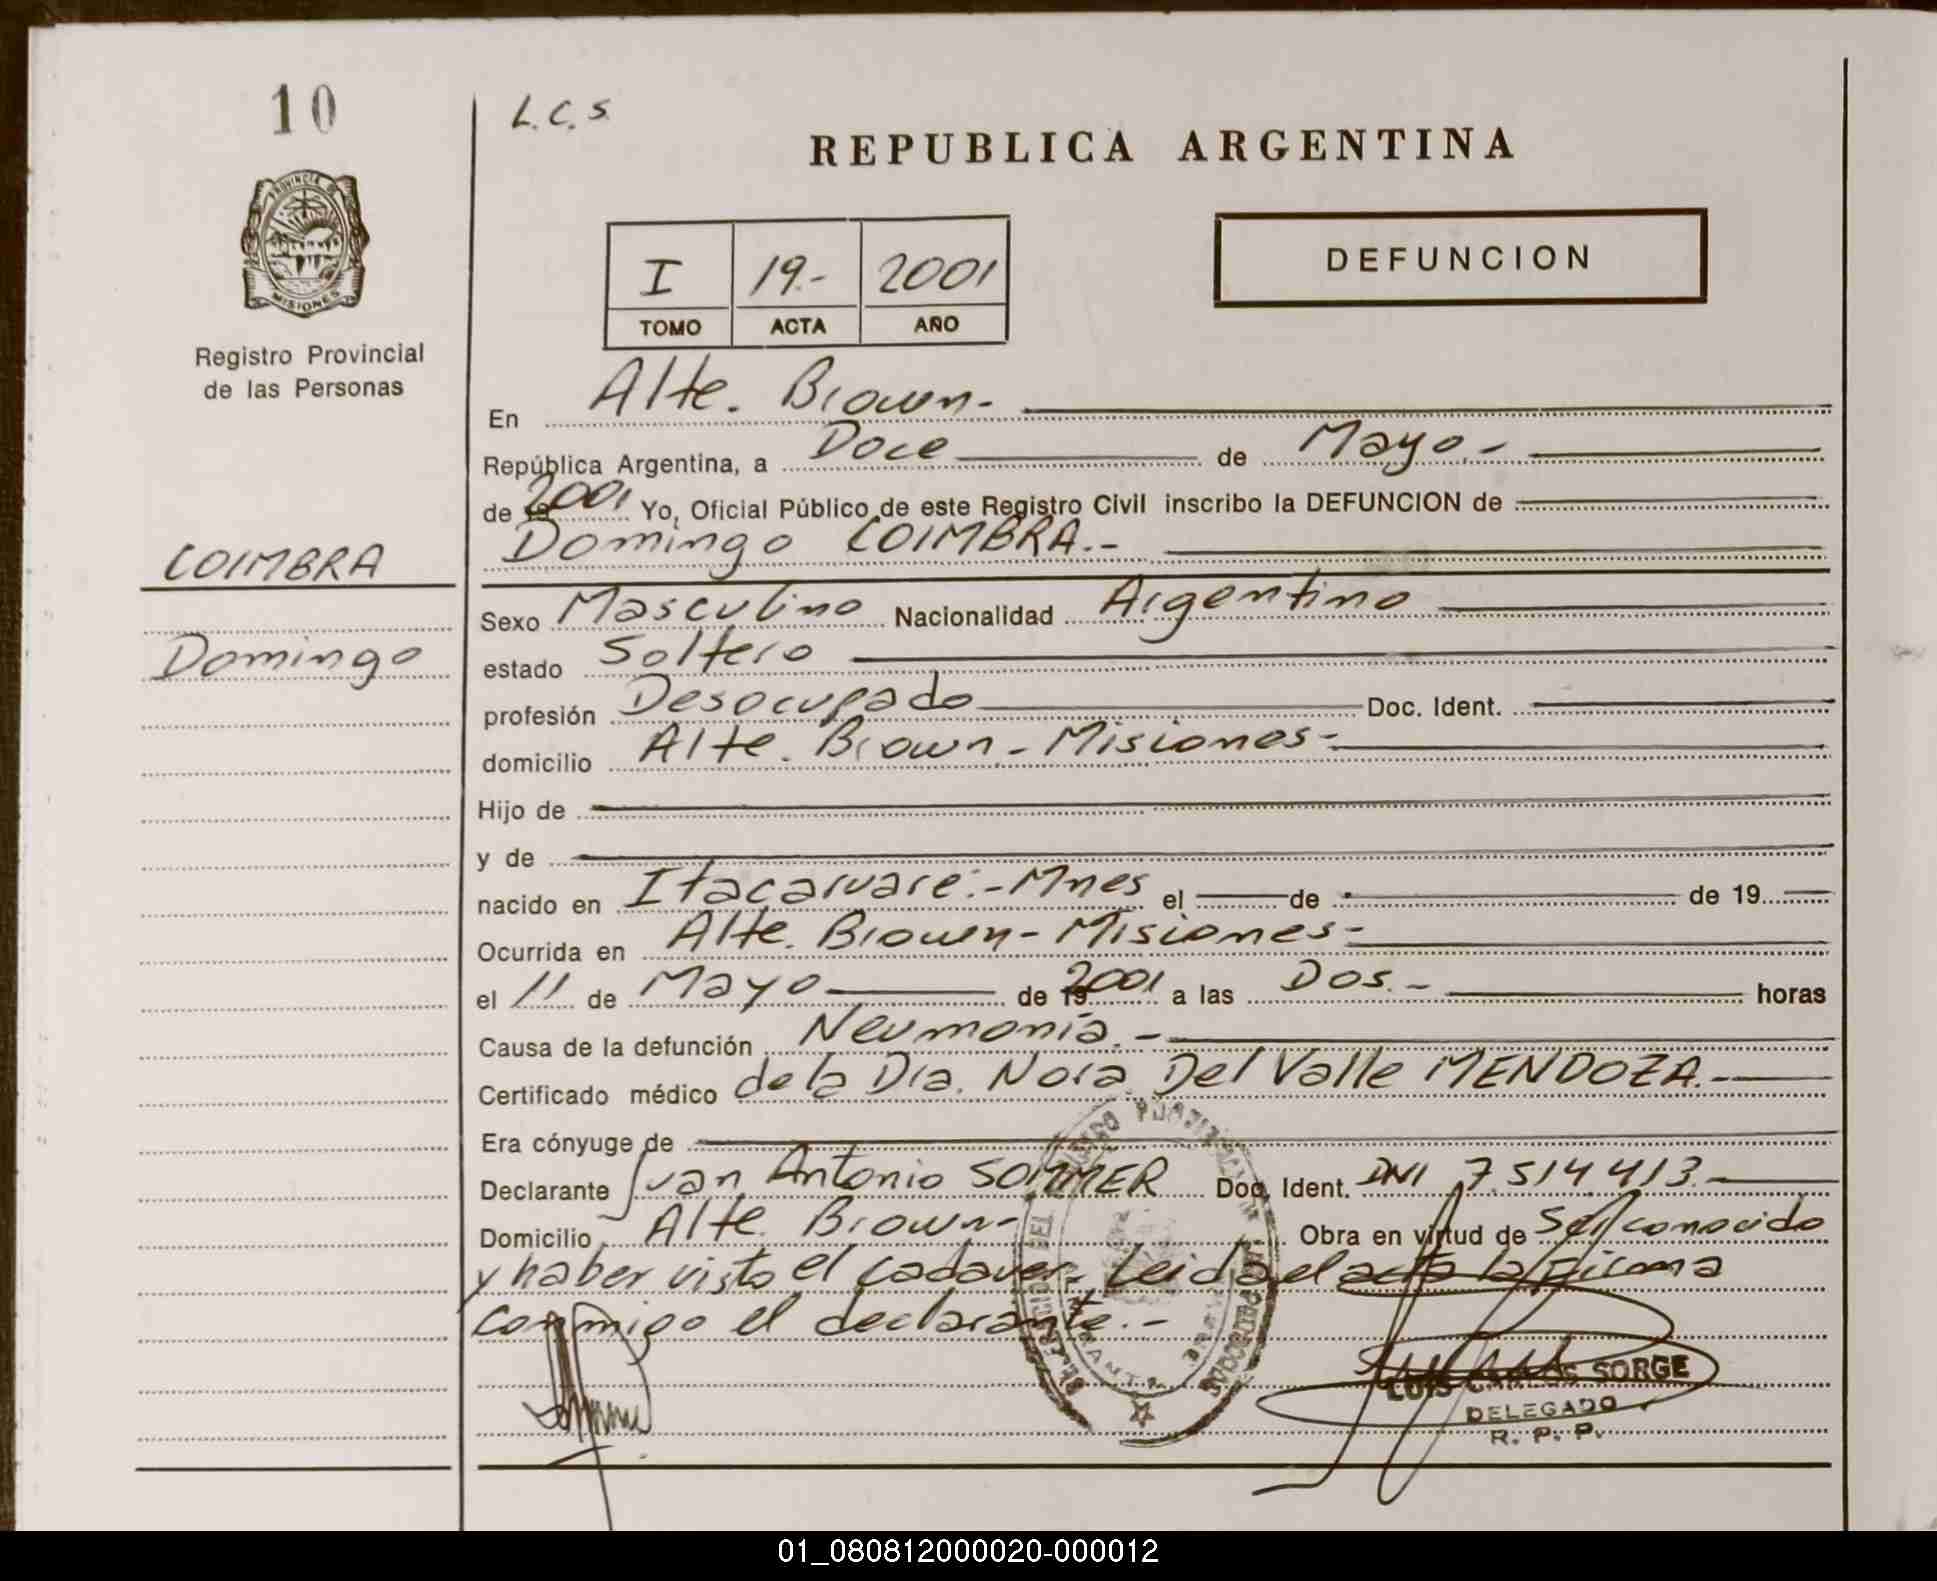 10
L. C. S.
REPUBLICA ARGENTINA
PROVINCIA DE
MISIONES
Registro Provincial
de las Personas
I 19.- 2001
TOMO ACTA AÑO
DEFUNCION
En Alte. Brown.-
República Argentina, a Doce de Mayo.-
de 19 2001 Yo, Oficial Público de este Registro Civil inscribo la DEFUNCION de
Domingo COIMBRA.-
COIMBRA
Domingo
Sexo Masculino Nacionalidad Argentino
estado Soltero
profesión Desocupado Doc. Ident.
domicilio Alte. Brown.- Misiones-
Hijo de
y de
nacido en Itacaruaré.- Mnes el de de 19
Ocurrida en Alte. Brown- Misiones-
el 11 de Mayo de 19 2001 a las Dos.- horas
Causa de la defunción Neumonía.-
Certificado médico de la Dra. Nora Del Valle MENDOZA.-
Era cónyuge de
Declarante Juan Antonio SOMMER Doc. Ident. DNI 7.514413.-
Domicilio Alte. Brown- Obra en virtud de Ser conocido
y haber visto el cadaver. Leida el acta la firma
conmigo el declarante.-
LUIS CARLOS SORGE
DELEGADO
R. P. P.
01_080812000020-000012